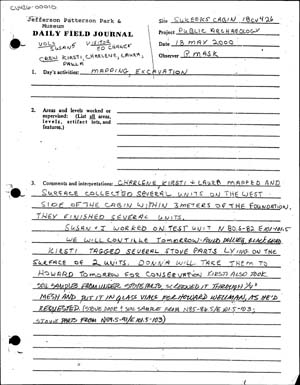 Jefferson Patterson Park &
Museum
DAILY FIELD JOURNAL
VOLS VISITOR
SUSAN S ED CHANEY
CREW KIRSTI, CHARLENE, LAURA,
PAULA
Site SUKEEKS CABIN 18CV426
Project PUBLIC ARCHAEOLOGY
Date 18 MAY 2000
Observer P. MASK
1. Day's activities: MAPPING, EXCAVATION
2. Areas and levels worked or
supervised: (List all areas,
levels, artifact lots, and
features.)
3. Comments and interpretations: CHARLENE, KIRSTI + LAURA MAPPED AND
SURFACE COLLECTED SEVERAL UNITS ON THE WEST
SIDE OF THE CABIN WITHIN 3 METERS OF THE FOUNDATION.
THEY FINISHED SEVERAL UNITS.
SUSAN + I WORKED ON TEST UNIT N 80.5-82
WE WILL CONTINUE TOMORROW.
KIRSTI TAGGED SEVERAL STOVE PARTS LYING ON THE
SURFACE OF 2 UNITS. DONNA WILL TAKE THEM TO
HOWARD TOMORROW FOR CONSERVATION. KIRSTI ALSO TOOK
SOIL SAMPLES FROM UNDER STOVE PARTS, SCREENED IT THROUGH 1/4"
MESH AND PUT IT IN GLASS VIALS FOR HOWARD WELLMAN, AS HE'D
REQUESTED. (STOVE DOOR + SOIL SAMPLE FROM
STOVE PARTS FROM